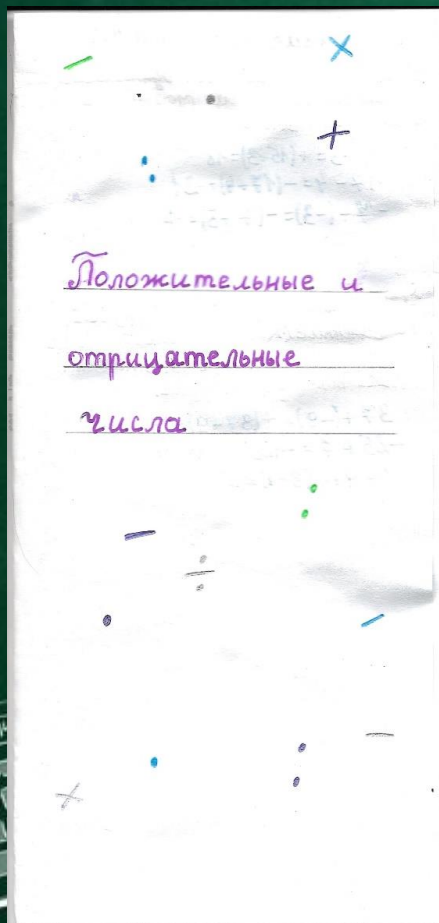 Положительные и
отрицательные
числа